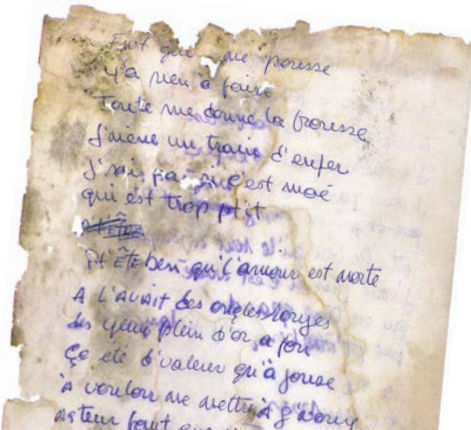 Fot que me pousse
Y'a rien à faire
Toute me donne la frousse
J'mène un train d'enfer
J'sais pas si c'est moé
qui est trop ptit
Pt'ête ben qu'l'amour est morte
A l'avait des ongles longs
des yeux plein d'or, a
Ça été d'valeur qu'a jouse
À vouloir me mettre à g'noux
Asteur faut que